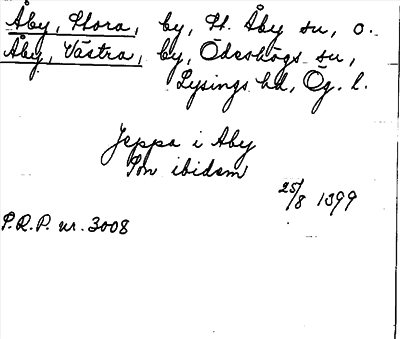 Åby, Stora, by, St. Åby sn, o.
Åby, Västra, by, Ödeshögs sn,
Lysings hd, Ög. l.
Jeppa i Aby
Pon ibidem
25/8 1399
P.R.P. nr. 3008